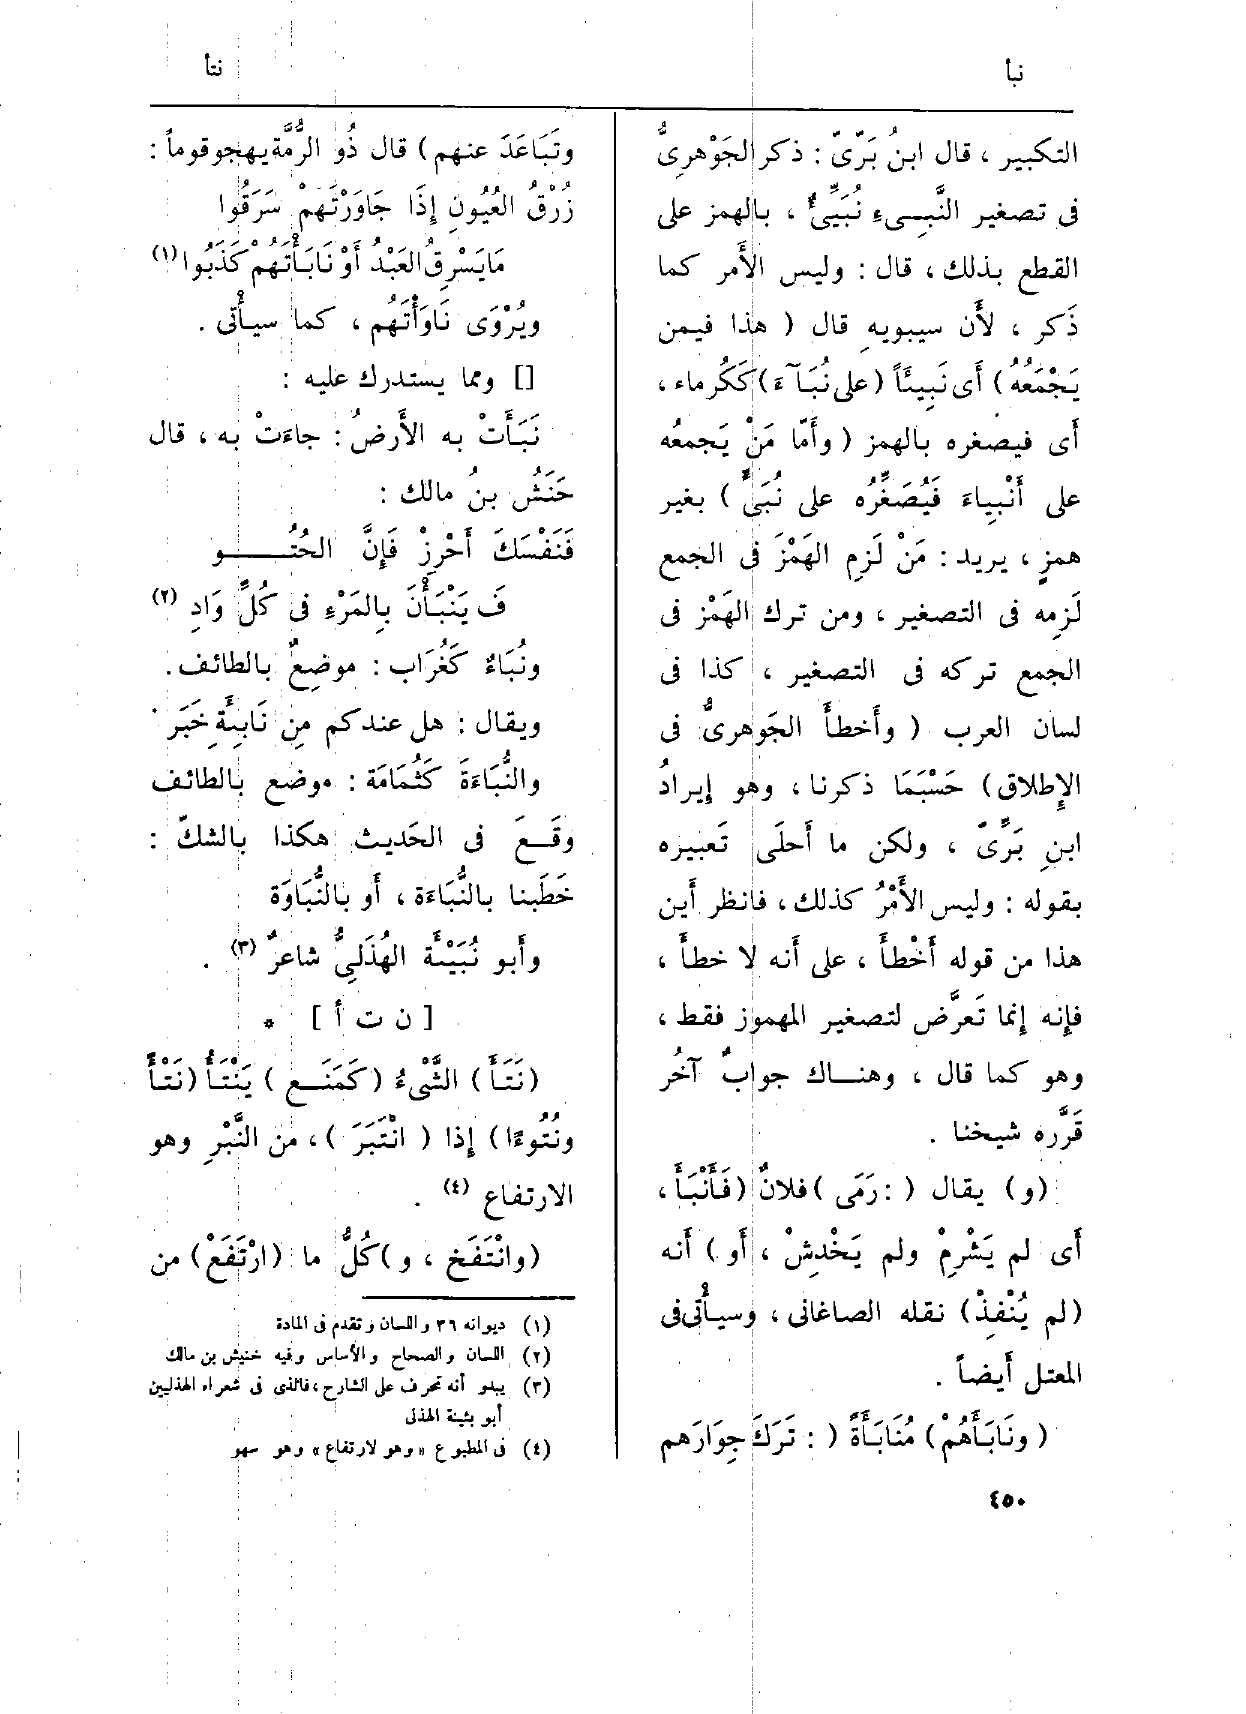 نبأ
نتأ
التكبير ، قال ابنُ بَرّىّ : ذكر الجَوْهرىُّ
فى تصغير النَّبِىء نُبَيِّىٌ ، بالهمز على
القطع بذلك ، قال : وليس الأَمر كما
ذَكر ، لأَن سيبويهِ قال ( هذا فيمن
يَجْمَعُهُ ) أَى نَبِيئاً ( على نُبَآءَ ) كَكُرماء ،
أَى فيصغره بالهمز ( وأَمّا مَنْ يَجمعُه
على أَنْبِياءَ فَيُصَغِّرُه على نُبَىٍّ ) بغير
همزٍ ، يريد : مَنْ لَزِم الهَمْزَ فى الجمع
لَزِمه فى التصغير ، ومن ترك الهَمْز فى
الجمع تركه فى التصغير ، كذا فى
لسان العرب ( وأَخطأَ الجَوهرىُّ فى
الإِطلاق ) حَسْبَمَا ذكرنا ، وهو إِيرادُ
ابنِ بَرِّىّ ، ولكن ما أَحلَى تَعبيره
بقوله : وليس الأَمْرُ كذلك ، فانظر أَين
هذا من قوله أَخْطأَ ، على أَنه لا خطأَ ،
فإِنه إِنما تَعرَّض لتصغير المهموز فقط ،
وهو كما قال ، وهنـاك جوابٌ آخُر
قَرَّره شيخنا .
(و) يقال ( : رَمَى ) فلانٌ ( فَأَنْبَأَ ،
أَى لم يَشْرِمِْ ولم يَخْدِشْ ، أَو ) أَنه
( لم يُنْفِذْ ) نقله الصاغانى ، وسيأْتى فى
المعتل أَيضاً .
( ونَابَأَهُمْ ) مُنَابَأَةً ( : تَرَكَ جِوَارَهم
٤٥٠
وتَبَاعَدَ عنهم ) قال ذُو الرُّمَّة يهجو قوماً :
زُرْقُ العُيُونِ إِذَا جَاوَرْتَهمْ سَرَقُوا
مَا يَسْرِقُ العَبْدُ أَوْ نَابَأْتَهُمْ كَذَبُوا (١)
ويُرْوَى نَاوَأْتَهُم ، كما سيأْتى .
[] ومما يستدرك عليه :
نَبَأَتْ به الأَرضُ : جاءَت به ، قال
حَنَشُ بنُ مالك :
فَنَفْسَكَ أَحْرِزْ فَإِنَّ الحُتُـــو
فَ يَنْبَأْنَ بِالمَرْءِ فى كُلِّ وَادِ (٢)
ونُبَاءٌ كَغُرَاب : موضِعٌ بالطائف .
ويقال : هل عندكم مِن نَابِئَةِ خَبَر
والنُّبَاءَةَ كَثُمَامَة : موضع بالطائف
وقَـعَ فى الحَديث هكذا بالشكّ :
خَطَبنا بالنُّبَاءَة ، أَو بالنُّبَاوَة
وأَبو نُبَيْئَة الهُذَلِىُّ شاعرٌ (٣) .
[ ن ت أ ] *
( نَتَأَ ) الشَّىْءُ ( كَمَنَـع ) يَنْتَأُ ( نَتْأً
ونُتُوءًا ) إِذا ( انْتَبَرَ ) ، من النَّبْرِ وهو
الارتفاع (٤) .
( وانْتَفَخَ ، و ) كُلُّ ما ( ارْتَفَعْ ) من
(١) ديوانه ٣٦ واللسان وتقدم فى المادة
(٢) اللسان والصحاح والأساس وفيه خنيش بن مالك
(٣) يبدو أنه تحرف على الشارح ، فالذى فى شعراء الهذليين
أبو بثينة الهذلى
(٤) فى المطبوع « وهو لارتفاع » وهو سهو